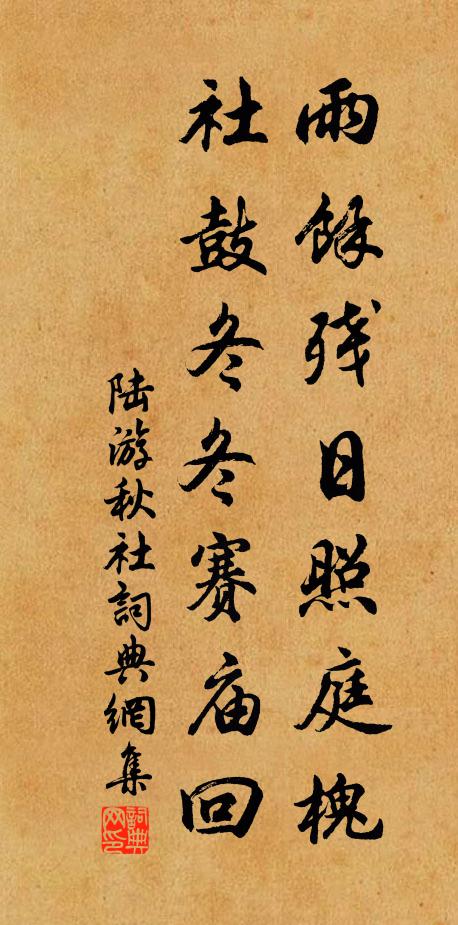 雨餘残日照庭槐
社鼓冬冬賽庙回
陆游秋社詞典網集
詞典网印